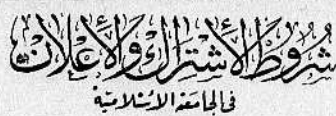 شُرُوطُ الْأَشْتِرَاكِ وَالْأَعْلَانِ
في الجامعة الاسلامية